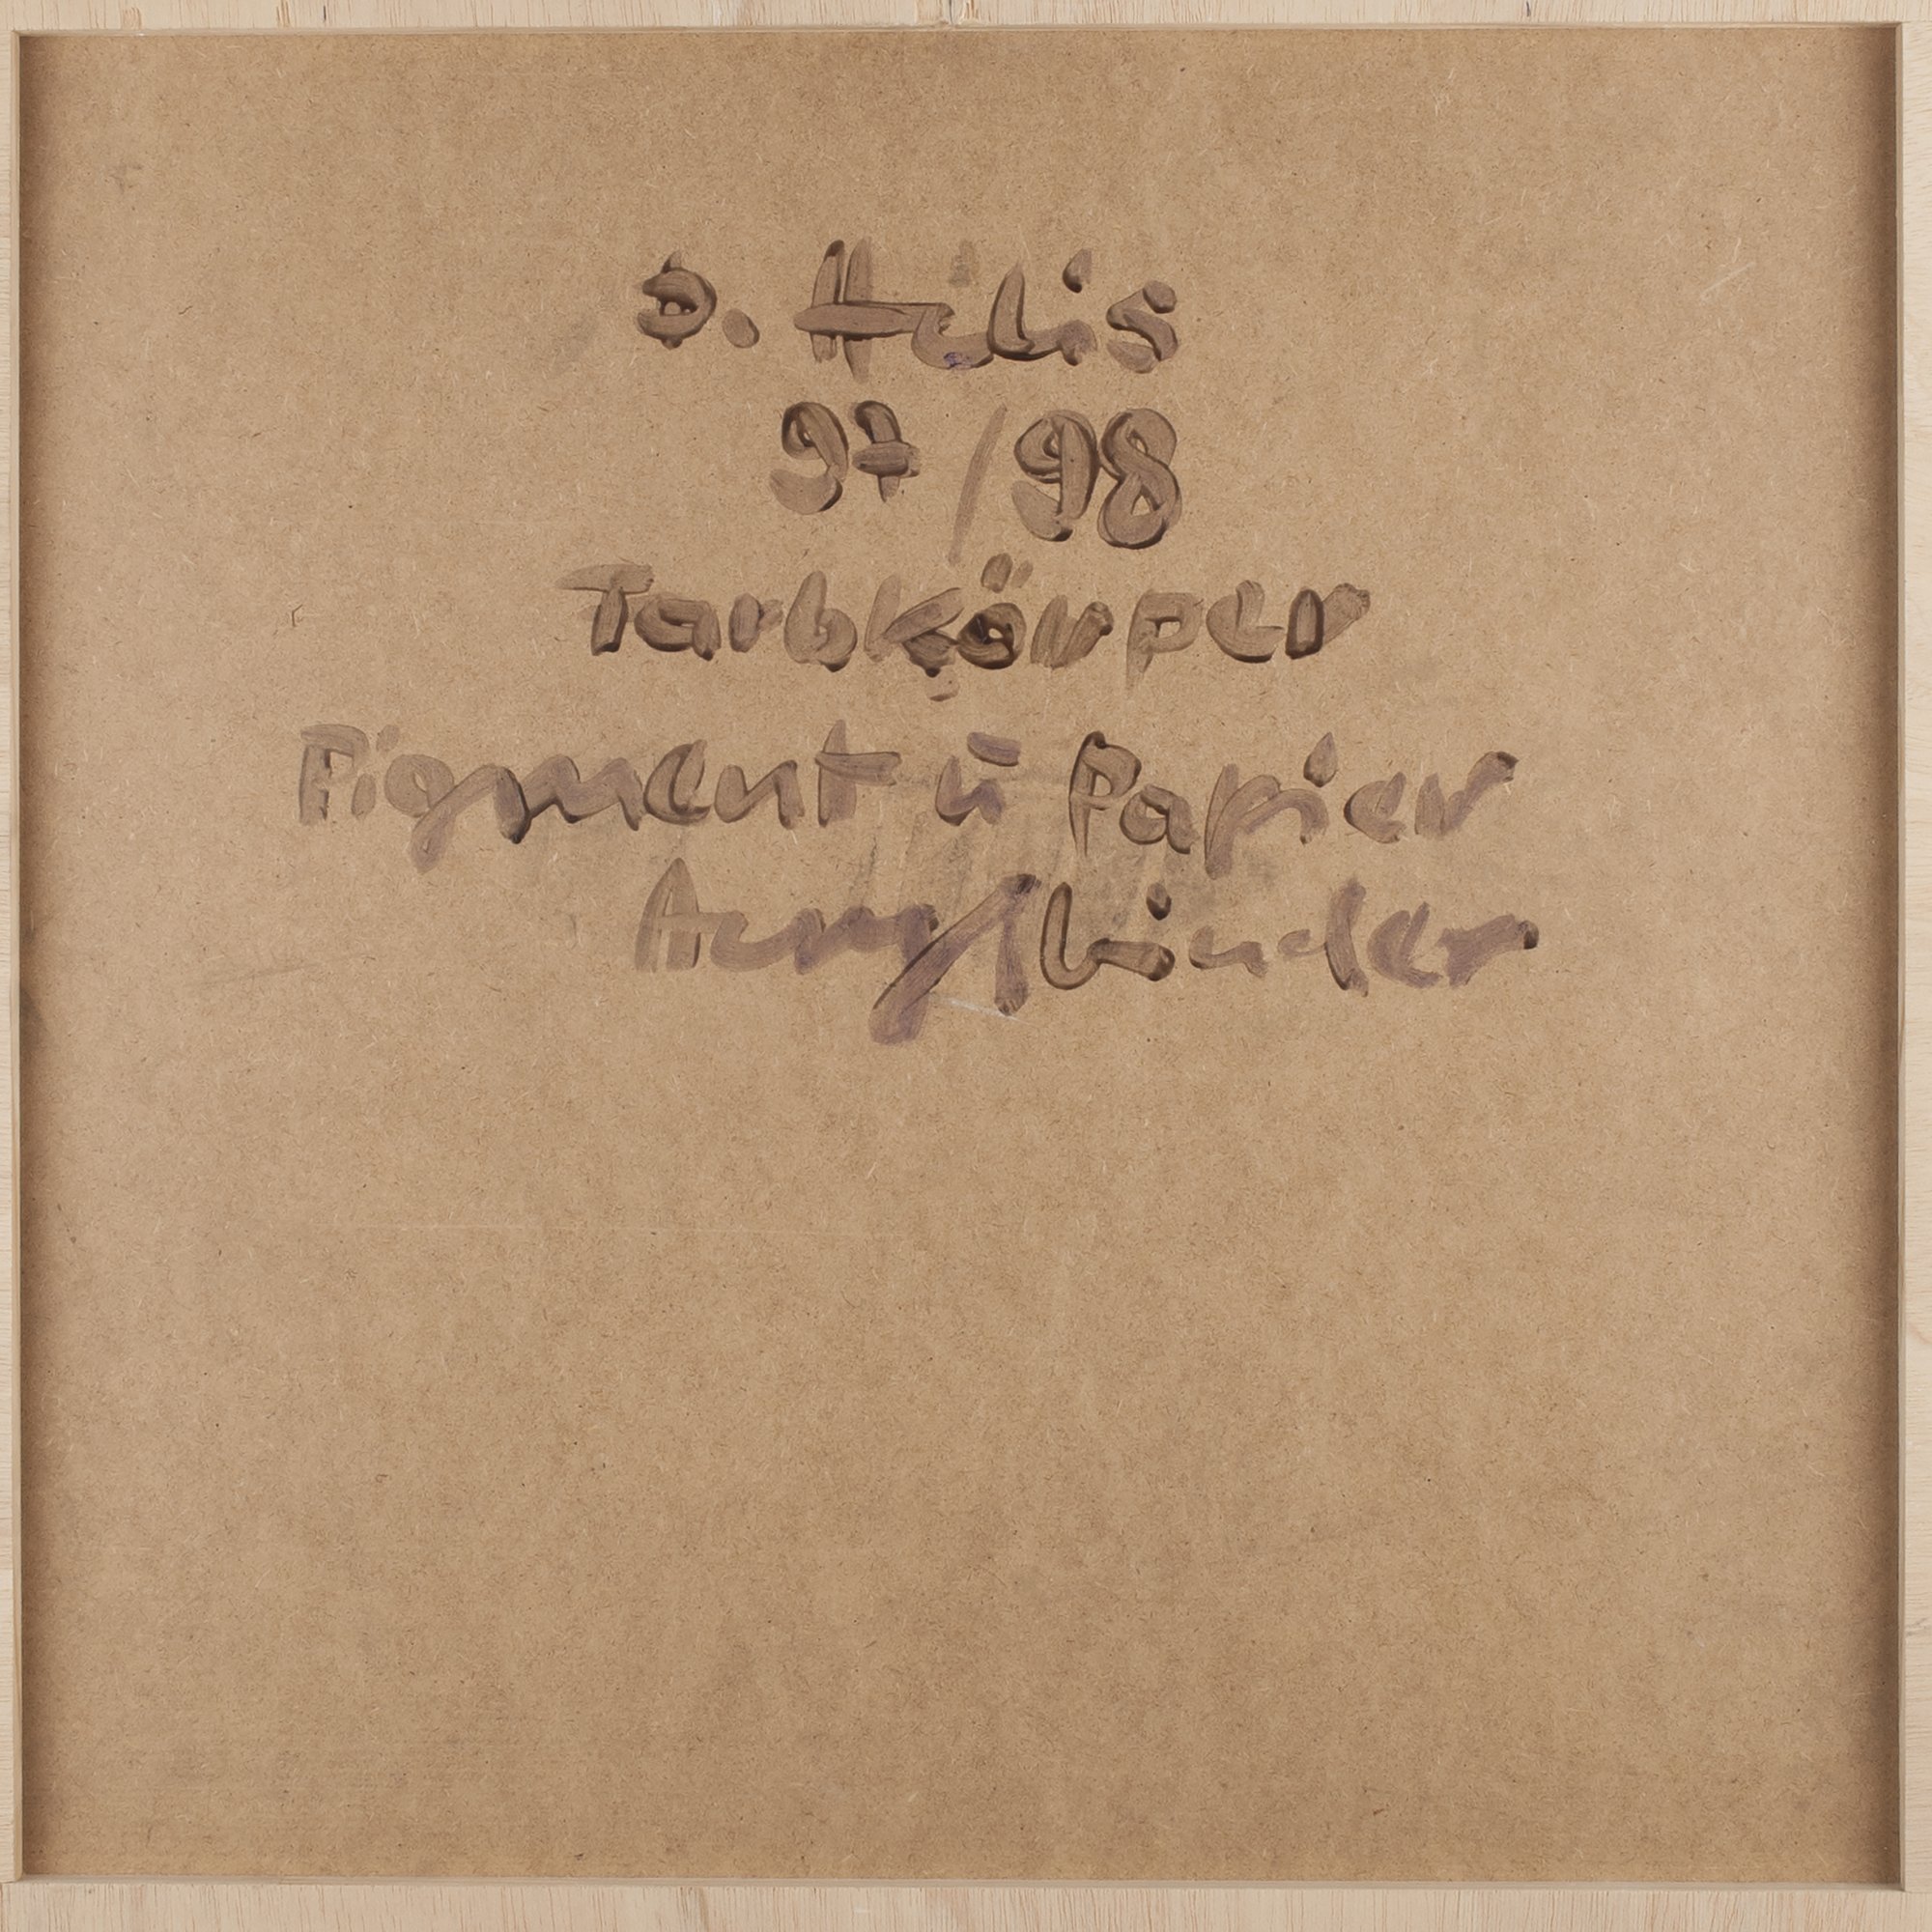 D. Helis
97/98
Farbkörper
Pigment ū Papier
Acrylbinder